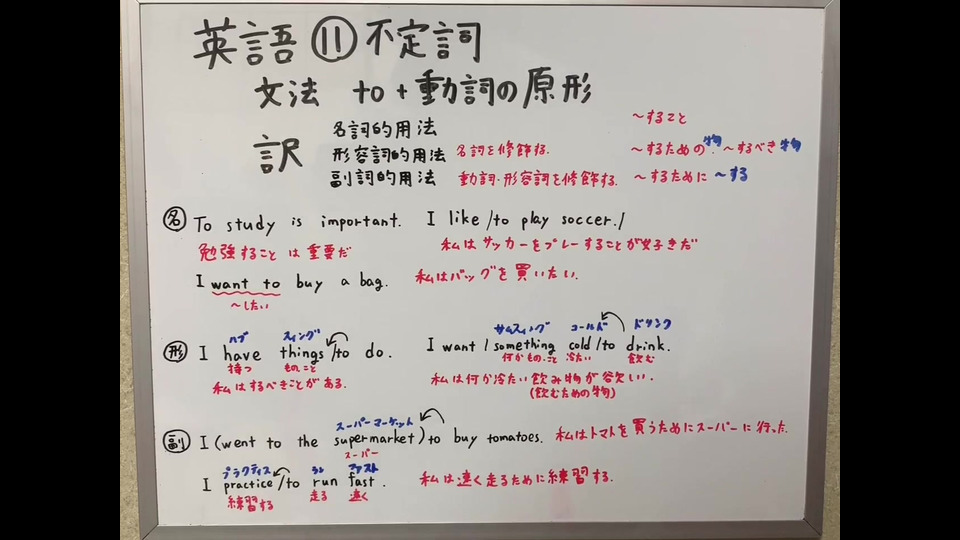 英語⑪不定詞
文法 to+動詞の原形
訳
名詞的用法 ~すること
形容詞的用法 名詞を修飾する. ~するための物. ~するべき物
副詞的用法 動詞・形容詞を修飾する. ~するために ~する
㊔ To study is important. I like /to play soccer./
勉強することは重要だ 私はサッカーをプレーすることが好きだ
I want to buy a bag. 私はバッグを買いたい.
~したい
ハブ スィング サムスィング コールド ドリンク
形 I have things /to do. I want / something cold /to drink.
持つ もの,こと 何かもの,こと 冷たい 飲む
私はするべきことがある. 私は何か冷たい飲み物が欲しい.
(飲むための物)
スーパーマーケット
副 I (went to the supermarket) to buy tomatoes. 私はトマトを買うためにスーパーに行った.
スーパー
プラクティス ラン ファスト
I practice /to run fast. 私は速く走るために練習する.
練習する 走る 速く